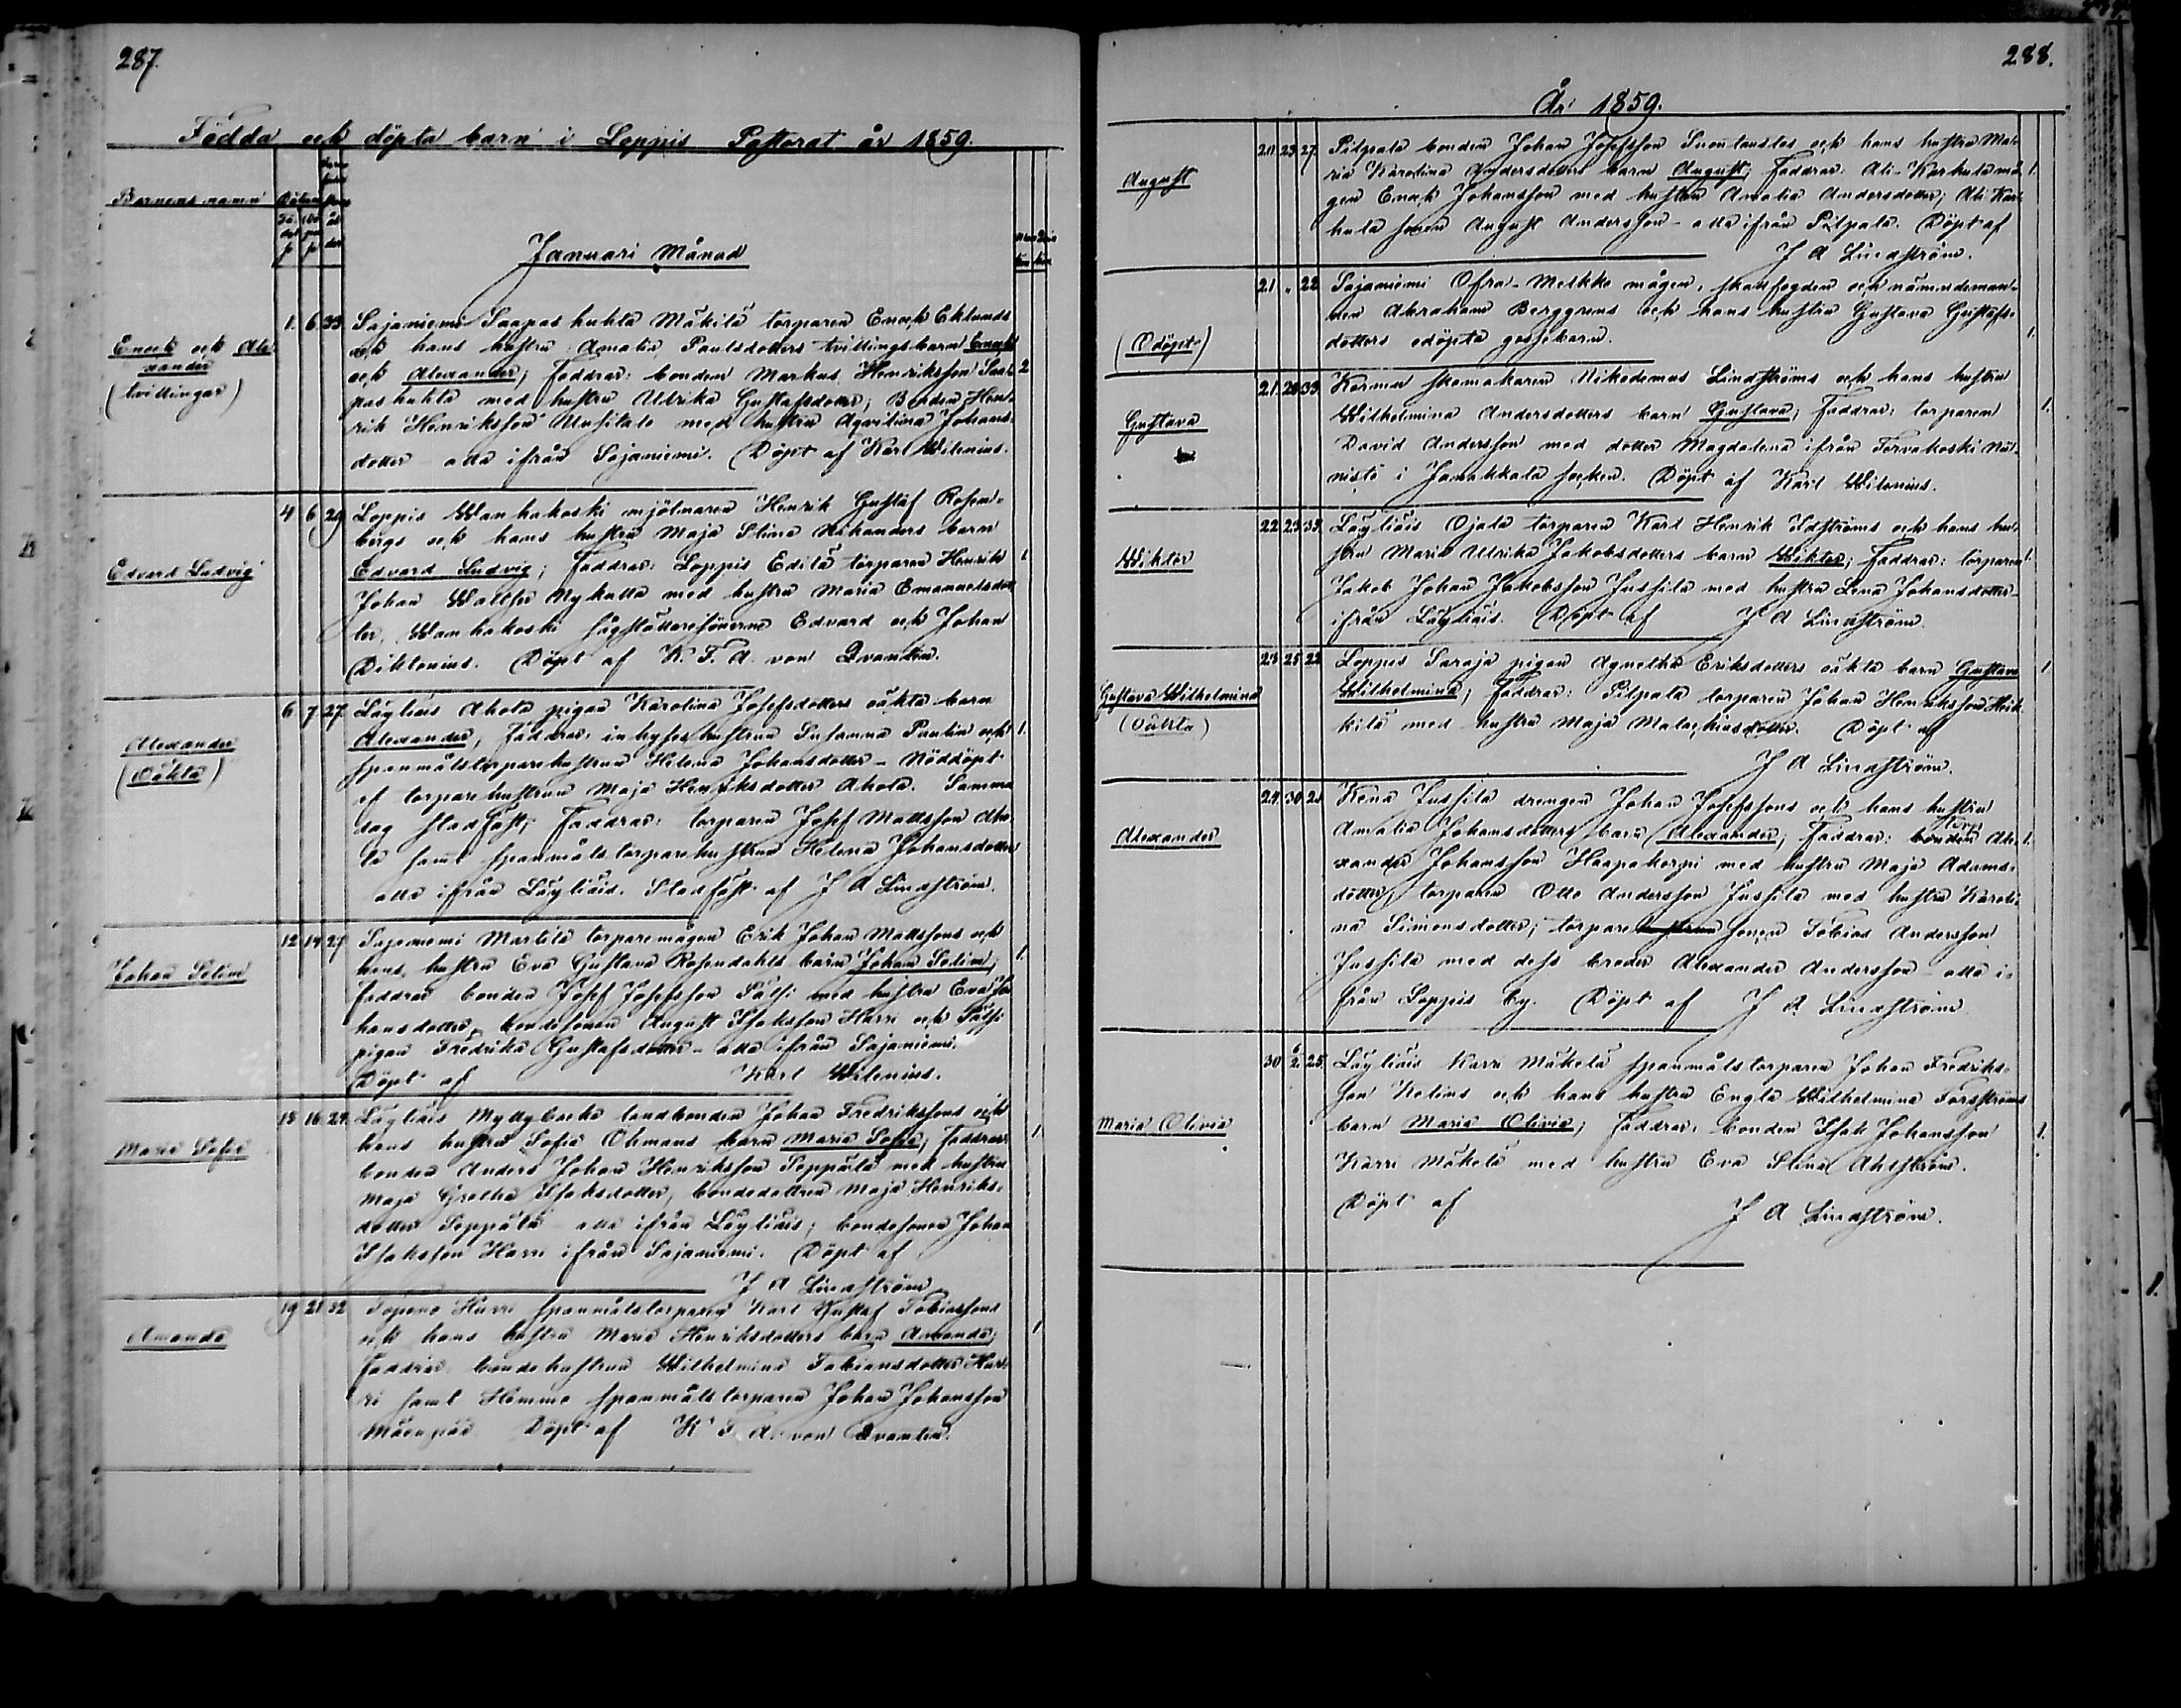 287.
Födda och döpta barn i Loppis Pastorat år 1859.
Barnens namn
Januari Månad
Enock och Ale-
xander
(tvillingar)
1. 6. 33. Sajaniemi Saapashuhta Mäkilä torparen Enoch Eklunds
och hans hustru Amalia Paulsdotters tvillingsbarn Enoch
och Alexander; Faddrar: bonden Markus Henriksson Saa- 2
pashuhta med hustru Ulrika Gustafsdotter; Bonden Hen-
rik Henriksson Uusitalo med hustru Aqvilina Johans-
dotter alla ifrån Sajaniemi. Döpt af Karl Wilenius.
Edvard Ludvig
4 6 29 Loppis Wanhakoski mjölnaren Henrik Gustaf Rosen-
bergs och hans hustru Maja Stina barn
Edvard Ludvig; Faddrar: Loppis Edilä torparen Henrik 1
Johan Nykalla med hustru Maria Emanuelsdot-
ter, Wanhakoski Edvard och Johan
Diktonius. Döpt af K. F. A. von Qvanten.
Alexander
(Oäkta)
6 7 27 Läyliäis Ahola pigan Karolina Josefsdotters oäkta barn
Alexander, Faddrar: inhyses hustrun Susanna Paulin och 1.
spanmålstorparehustrun Helena Johansdotter - Nöddöpt
af torparehustrun Maja Henriksdotter Ahola. Samma
dag stadfäst; Faddrar: torparen Josef Mattsson Aho-
la samt spanmåls torparehustrun Helena Johansdotter
alla ifrån Läyliäis. Stadfäst af J A Lindström.
Johan Selim
12 14 27 Sajaniemi Martila torparemågen Erik Johan Mattsons och
hans hustru Eva Gustava Rosendahls barn Johan Selim; 1.
Faddrar bonden Josef Josefsson Sälli med hustru Eva Jo-
hansdotter, bondesonen August Isaksson Harri och Sälli
pigan Fredrika Gustafsdotter - alla ifrån Sajaniemi.
Döpt af Karl Wilenius.
Maria Sofia
15 16 24. Läyliäis Myllybacka landbonden Johan Fredrikssons och
hans hustru Sofia Öhmans barn Maria Sofia; Faddrar 1.
bonden Anders Johan Henriksson Seppälä med hustru
Maja Gretha Isaksdotter, bondedottren Maja Henriks-
dotter Seppälä alla ifrån Läyliäis; bondesonen Johan
Isaksson Harri ifrån Sajaniemi. Döpt af
J A Lindström
Amanda
19 21 32 Topeno Hurri spanmålstorparen Karl Gustaf Tobiassons
och hans hustru Maria Henriksdotters barn Amanda; 1
Faddrar bondehustrun Wilhelmina Fabiansdotter Hur-
ri samt Hemmo spanmålstorparen Johan Johansson
Döpt af K F. A. von Qvanten.
288.
År 1859.
August
20. 23 27. Pilpala bonden Johan Josefsson och hans hustru Ma-
ria Karolina Andersdotters barn August; Faddrar: Ali-Karhula må- 1.
gen Enoch Johansson med hustru Amalia Andersdotter; Ali Kar-
hula sonen August Andersson - alla ifrån Pilpala. Döpt af
J A Lindström.
(Odöpt)
21 " 22 Sajaniemi Ofra-Meskko mågen, skanfogden och nämndeman-
nen Abraham Berggrens och hans hustru Gustava Gustafs-
dotters odöpta gossebarn. 1.
Gustava
21. 26 33. Kormu skomakaren Nikodemus Lindströms och hans hustru
Wilhelmina Andersdotters barn Gustava; Faddrar: torparen 1.
David Andersson med dotter Magdalena ifrån Tervakoski
i Janakkala socken. Döpt af Karl Wilenius.
Wiktor
22 23 35. Läyliäis Ojala torparen Karl Henrik och hans hu-
stru Maria Ulrika Jakobsdotters barn Wiktor; Faddrar: torparen 1.
Jakob Johan Jakobsson Jussila med hustru Lena Johansdotter -
ifrån Läyliäis. Döpt af J A Lindström.
Gustava Wilhelmina
(Oäkta)
23 25 22 Loppis Saraja pigan Agnetha Eriksdotters oäkta barn Gustava 1
Wilhelmina; Faddrar: Pilpala torparen Johan Henriksson Heik-
kilä med hustru Maja Malachiasdotter. Döpt af
J A Lindström.
Alexander
24 30 21 Räna Jussila drengen Johan Josefssons och hans hustru
Amalia Johansdotters barn Alexander; Faddrar: bonden Ale- 1.
xander Johansson Haapakorpi med hustru Maja Adams-
dotter, torparen Otto Andersson Jussila med hustru Karoli-
na Simonsdotter; torpare hustrun sonen Tobias Andersson
Jussila med dess broder Alexander Andersson - alla i-
från Loppis by. Döpt af J A Lindström
Maria Olivia
30 6/2. 25. Läyliäis Karri Mäkelä spanmålstorparen Johan Fredriks-
son och hans hustru Engla Wilhelmina Forsströms
barn Maria Olivia; Faddrar: bonden Isak Johansson 1.
Karri Mäkelä med hustru Eva Stina Ahlström.
Döpt af J A Lindström.